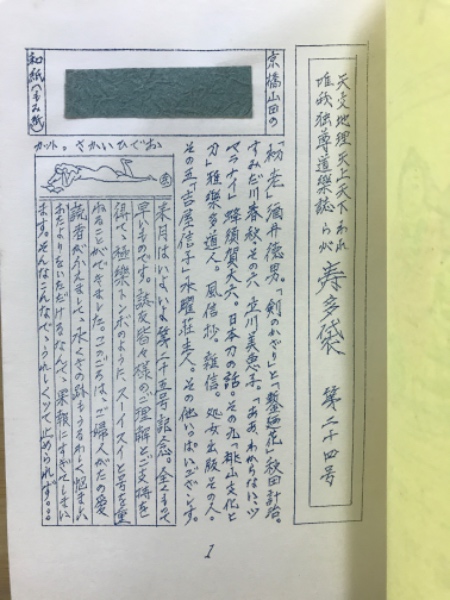 天文地理 天上天下 われ
唯我独尊道楽誌 らが
寿多袋
第二十四号
京橋山田の
和紙(もみ紙)
カット。さかいひでお
「初老」酒井徳男。「剣のかざり」と「鏨廼花」秋田計治。
すみだ川春秋・その六 立川美恵子。「ああ、わからないッツ
マラナイ」蜂須賀犬六。日本刀の話。その九「桃山文化と
刀」雅楽多道人。風信抄。雑信。処女出版 その人。
その五「吉屋信子」水曜荘主人。その他いっぱいございます。
来月はいよいよ第二十五号記念。全くもって
早いものです。誌友皆々様のご理解とご支持を
得て、極楽トンボのように、スーイスイと号を重
ねることができました。このごろは、ご婦人がたの愛
読者がふえまして、水くさの
おたよりをいただけるなんて、果報にすぎてしまい
ます。そんなこんなで、うれしくッて止められず。
1